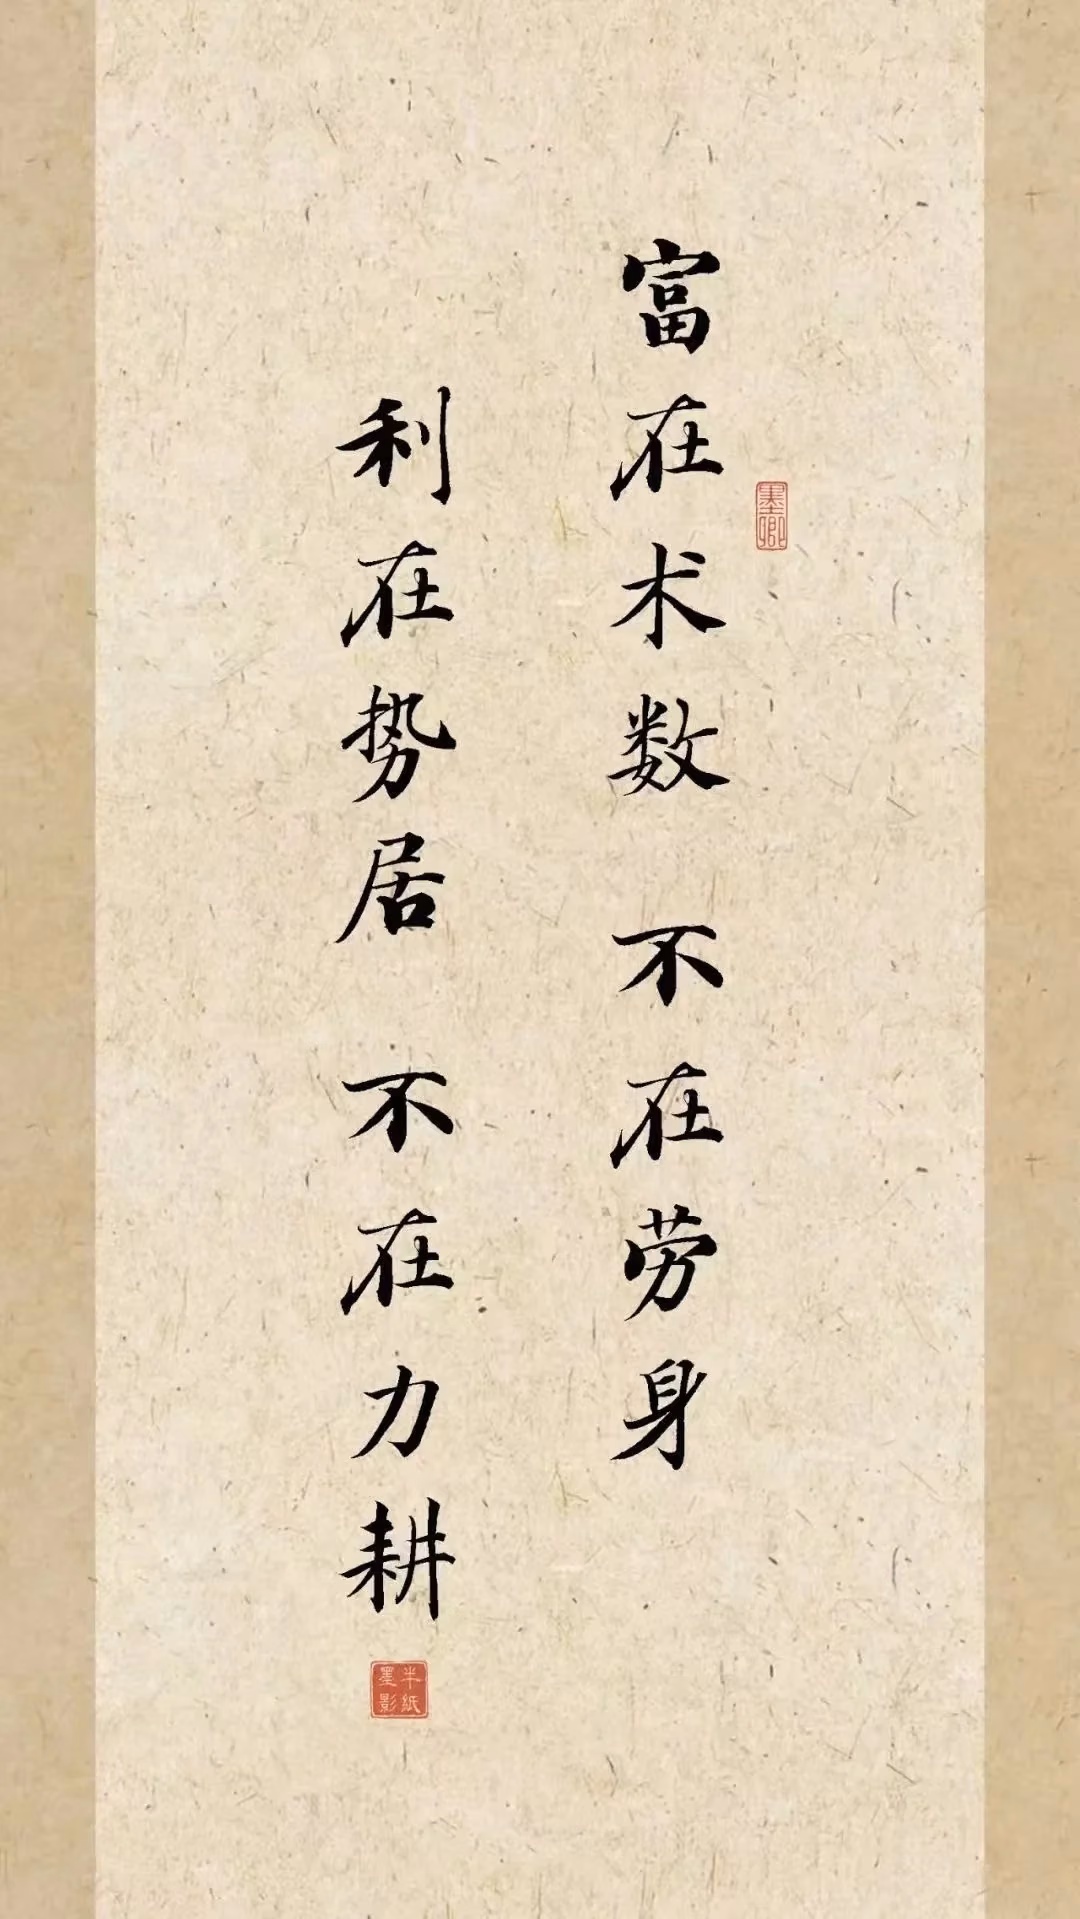 富在术数 不在劳身
利在势居 不在力耕
墨卿
半纸墨影